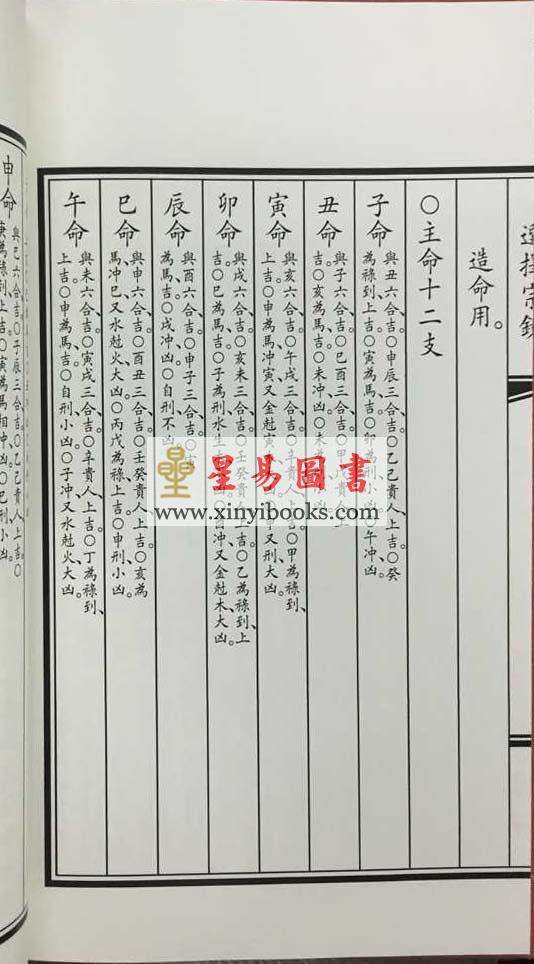 選擇宗鏡
造命用。
○主命十二支
子命
與丑六合吉○申辰三合吉○乙己貴人上吉○癸
為祿到上吉○寅為馬吉○卯為刑小凶○午冲凶。
丑命
與子六合吉○巳酉三合吉○甲戊貴人上
吉○亥為馬吉○未冲凶○未為
寅命
與亥六合吉○午戌三合吉○辛貴人上吉○甲為祿到、
上吉○申為馬冲寅又金尅寅 凶○申又刑大凶。
卯命
與戌六合吉○亥未三合吉○壬癸貴人上吉○乙為祿到、上
吉○巳為馬吉○子為刑水生 凶○酉冲又金尅木大凶。
辰命
與酉六合吉○申子三合吉○寅
為馬吉○戌冲凶○自刑不凶
巳命
與申六合吉○酉丑三合吉○壬癸貴人上吉○亥為
馬冲巳又水尅火大凶○丙戊為祿上吉○申刑小凶。
午命
與未六合吉○寅戌三合吉○辛貴人上吉○丁為祿到、
上吉○申為馬吉○自刑小凶○子冲又水尅火大凶。
申命
與巳六合吉○子辰三合吉○乙己貴人上吉○
庚為祿到上吉○寅為馬相冲凶○巳刑小凶。
星易圖書
www.xinyibooks.com